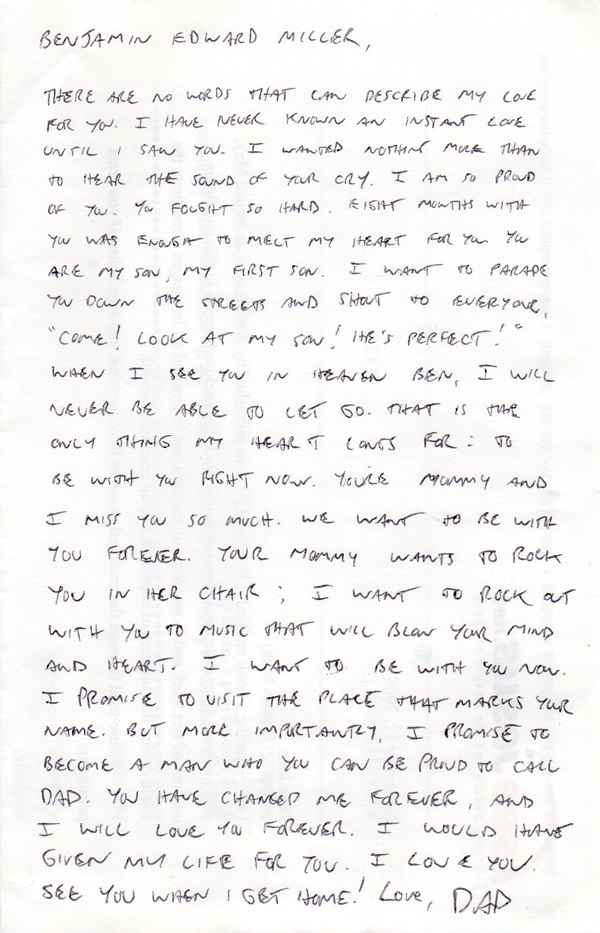 BENJAMIN EDWARD MILLER,
THERE ARE NO WORDS THAT CAN DESCRIBE MY LOVE
FOR YOU. I HAVE NEVER KNOWN AN INSTANT LOVE
UNTIL I SAW YOU. I WANTED NOTHING MORE THAN
TO HEAR THE SOUND OF YOUR CRY. I AM SO PROUD
OF YOU. YOU FOUGHT SO HARD. EIGHT MONTHS WITH
YOU WAS ENOUGH TO MELT MY HEART FOR YOU. YOU
ARE MY SON, MY FIRST SON. I WANT TO PARADE
YOU DOWN THE STREETS AND SHOUT TO EVERYONE,
"COME! LOOK AT MY SON! HE'S PERFECT!"
WHEN I SEE YOU IN HEAVEN BEN, I WILL
NEVER BE ABLE TO LET GO. THAT IS THE
ONLY THING MY HEART LONGS FOR: TO
BE WITH YOU RIGHT NOW. YOU'RE MOMMY AND
I MISS YOU SO MUCH. WE WANT TO BE WITH
YOU FOREVER. YOUR MOMMY WANTS TO ROCK
YOU IN HER CHAIR; I WANT TO ROCK OUT
WITH YOU TO MUSIC THAT WILL BLOW YOUR MIND
AND HEART. I WANT TO BE WITH YOU NOW.
I PROMISE TO VISIT THE PLACE THAT MARKS YOUR
NAME. BUT MORE IMPORTANTLY, I PROMISE TO
BECOME A MAN WHO YOU CAN BE PROUD TO CALL
DAD. YOU HAVE CHANGED ME FOREVER, AND
I WILL LOVE YOU FOREVER. I WOULD HAVE
GIVEN MY LIFE FOR YOU. I LOVE YOU.
SEE YOU WHEN I GET HOME! LOVE, DAD